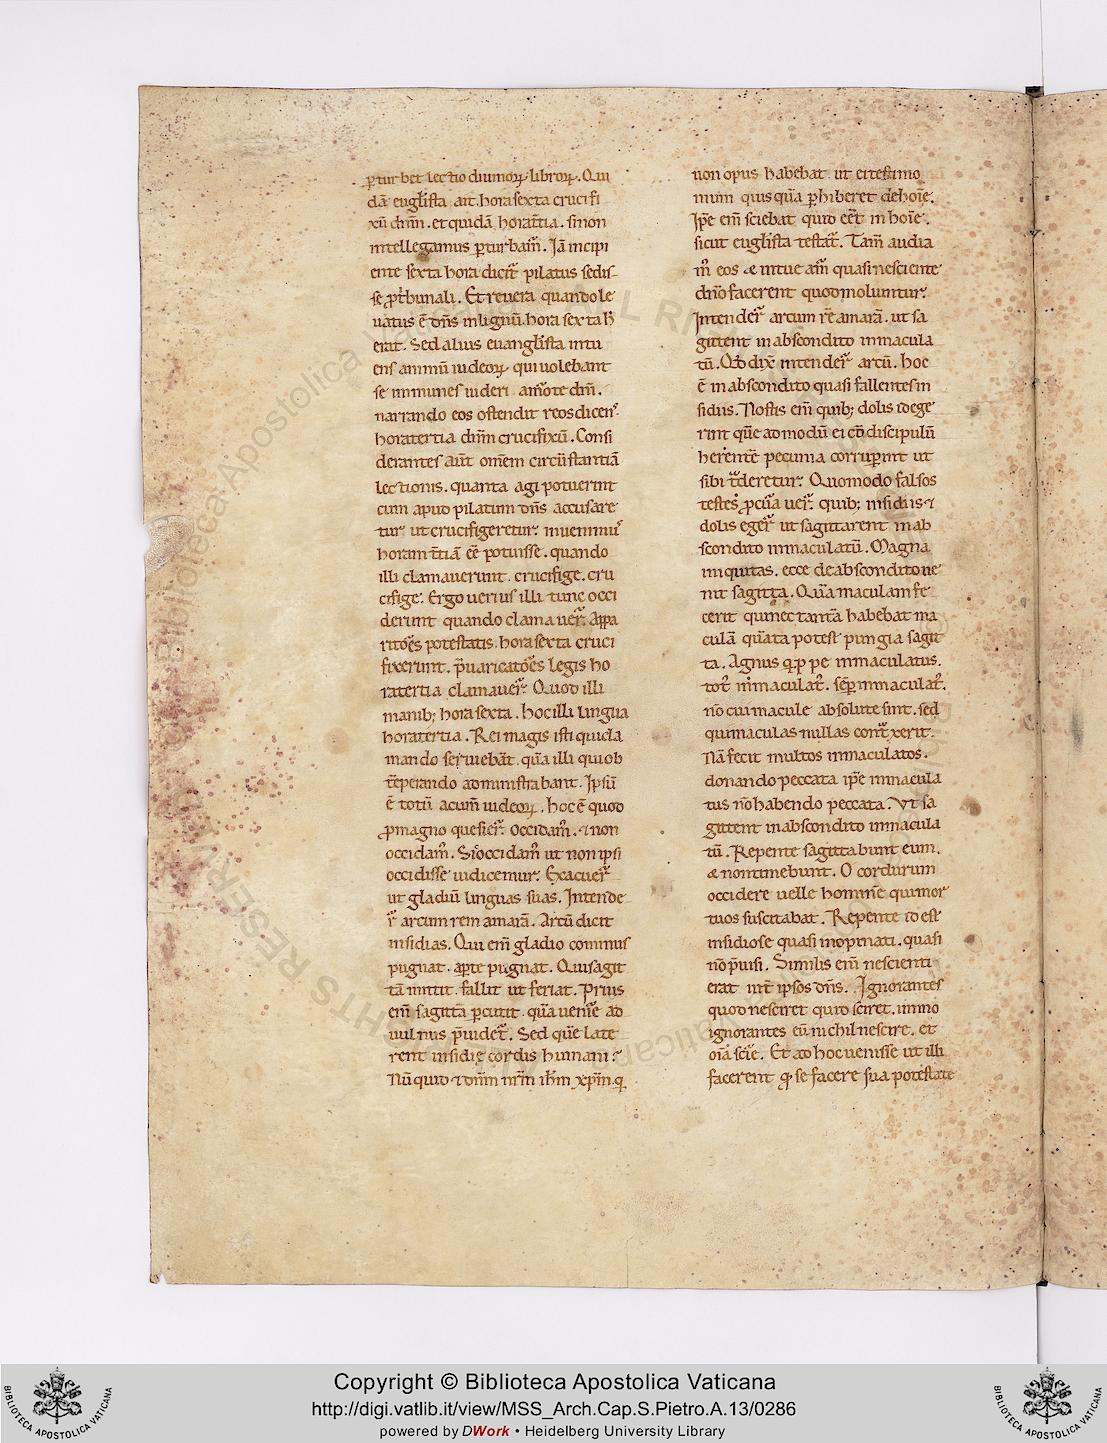 ꝑturbet lectio diuinoꝝ libroꝝ. Qui
dā euḡlista ait. hora sexta crucifi
xū dnm̄. et quidā hora t̄tia. sinon
intellegamus ꝑturbam̄. Iā incipi
ente sexta hora dicit̄ pilatus sedis
se ꝓ tͥbunali. Et reuera quando le
uatus ē dn̄s in lignū. hora sexta
erat. Sed alius euanglīsta intu
ens animū iudeoꝝ qui uolebant
se inmunes uideri a morte dn̄i.
narrando eos ostendit reos dicenˢ.
hora tertia dnm̄ crucifixū. Consi
derantes aūt omēm circūstantiā
lectionis. quanta agi potuerint
cum apud pilatum dn̄s accusare
tur. ut crucifigeretur. inuenimꝰ
horam t̄tiā eē potuisse. quando
illi clamauerunt. crucifige. cru
cifige. Ergo uerius illi tunc occi
derunt quando clamauer̄. Appa
ritōes potestatis. hora sexta cruci
fixerunt. p̄uaricatōes legis ho
ra tertia clamauer̄. Quod illi
manib; hora sexta. hoc illi lingua
hora tertia. Rei magis isti qui cla
mando seruiebāt. quā illi qui ob
tēperando administrabant. Ipsū
ē totū acum̄ iudeoꝝ. hoc ē quod
ꝓ magno quesier̄. Occidam̄. ⁊ non
occidam̄. Sic occidam̄ ut non ipsi
occidisse iudicemur. Exacuer̄
ut gladiū linguas suas. Intende
r̄ arcum rem amarā. Arcū dicit
insidias. Qui em̄ gladio cominus
pugnat. apte pugnat. Qui sagit
tā mittit. fallit ut feriat. Prius
em̄ sagitta ꝑcutit. quā uenire ad
uulnus p̄uidet̄. Sed quē late
rent insidię cordis humani?
Nūquid ⁊ dnm̄ nrm̄ ihm̄ xpm̄. q
non opus habebat ut ei testimo
nium quisquā ꝑhiberet de hoīe.
Ipse em̄ sciebat quid eēt in hoīe.
sicut euglīsta testat̄. Tam̄ audia
m̄ eos & intueam̄ quasi nesciente
dno facerent quod moliuntur.
Intender̄ arcum rē amarā. ut sa
gittent in abscondito inmacula
tū. Qd̄ dix̄ intender̄ arcū. hoc
ē in abscondito quasi fallentes in
sidiis. Nostis em̄ quib; dolis id ege
rint quē admodū ei eū discipulū
herentē pecunia corruꝑint ut
sibi traderetur. Quomodo falsos
testes ꝓcuauer̄. quib; insidiis ⁊
dolis eger̄ ut sagittarent in ab
scondito inmaculatū. Magna
iniquitas. ecce de abscondito ue
nit sagitta. Quā maculam fe
cerit qui nec tantā habebat ma
culā quāta potest pungi a sagit
ta. Agnus quippe inmaculatus.
tot̄ inmaculat̄. semp inmaculat̄.
nō cui macule absolute sint. sed
qui maculas nullas contraxerit.
Nā fecit multos inmaculatos.
donando peccata ipse inmacula
tus nō habendo peccata. Vt sa
gittent in abscondito inmacula
tū. Repente sagittabunt eum.
& non timebunt. O cor durum
occidere uelle hominē qui mor
tuos suscitabat. Repente id est
insidiose quasi inopinati. quasi
nō p̄uisi. Similis em̄ nescienti
erat int̄ ipsos dn̄s. Ignorantes
quod nesciret quid sciret. immo
ignorantes eū nichil nescire. et
oīa scīe. Et ad hoc uenisse ut illi
facerent qᷓ se facere sua potestate
Copyright © Biblioteca Apostolica Vaticana
http://digi.vatlib.it/view/MSS_Arch.Cap.S.Pietro.A.13/0286
powered by DWork • Heidelberg University Library